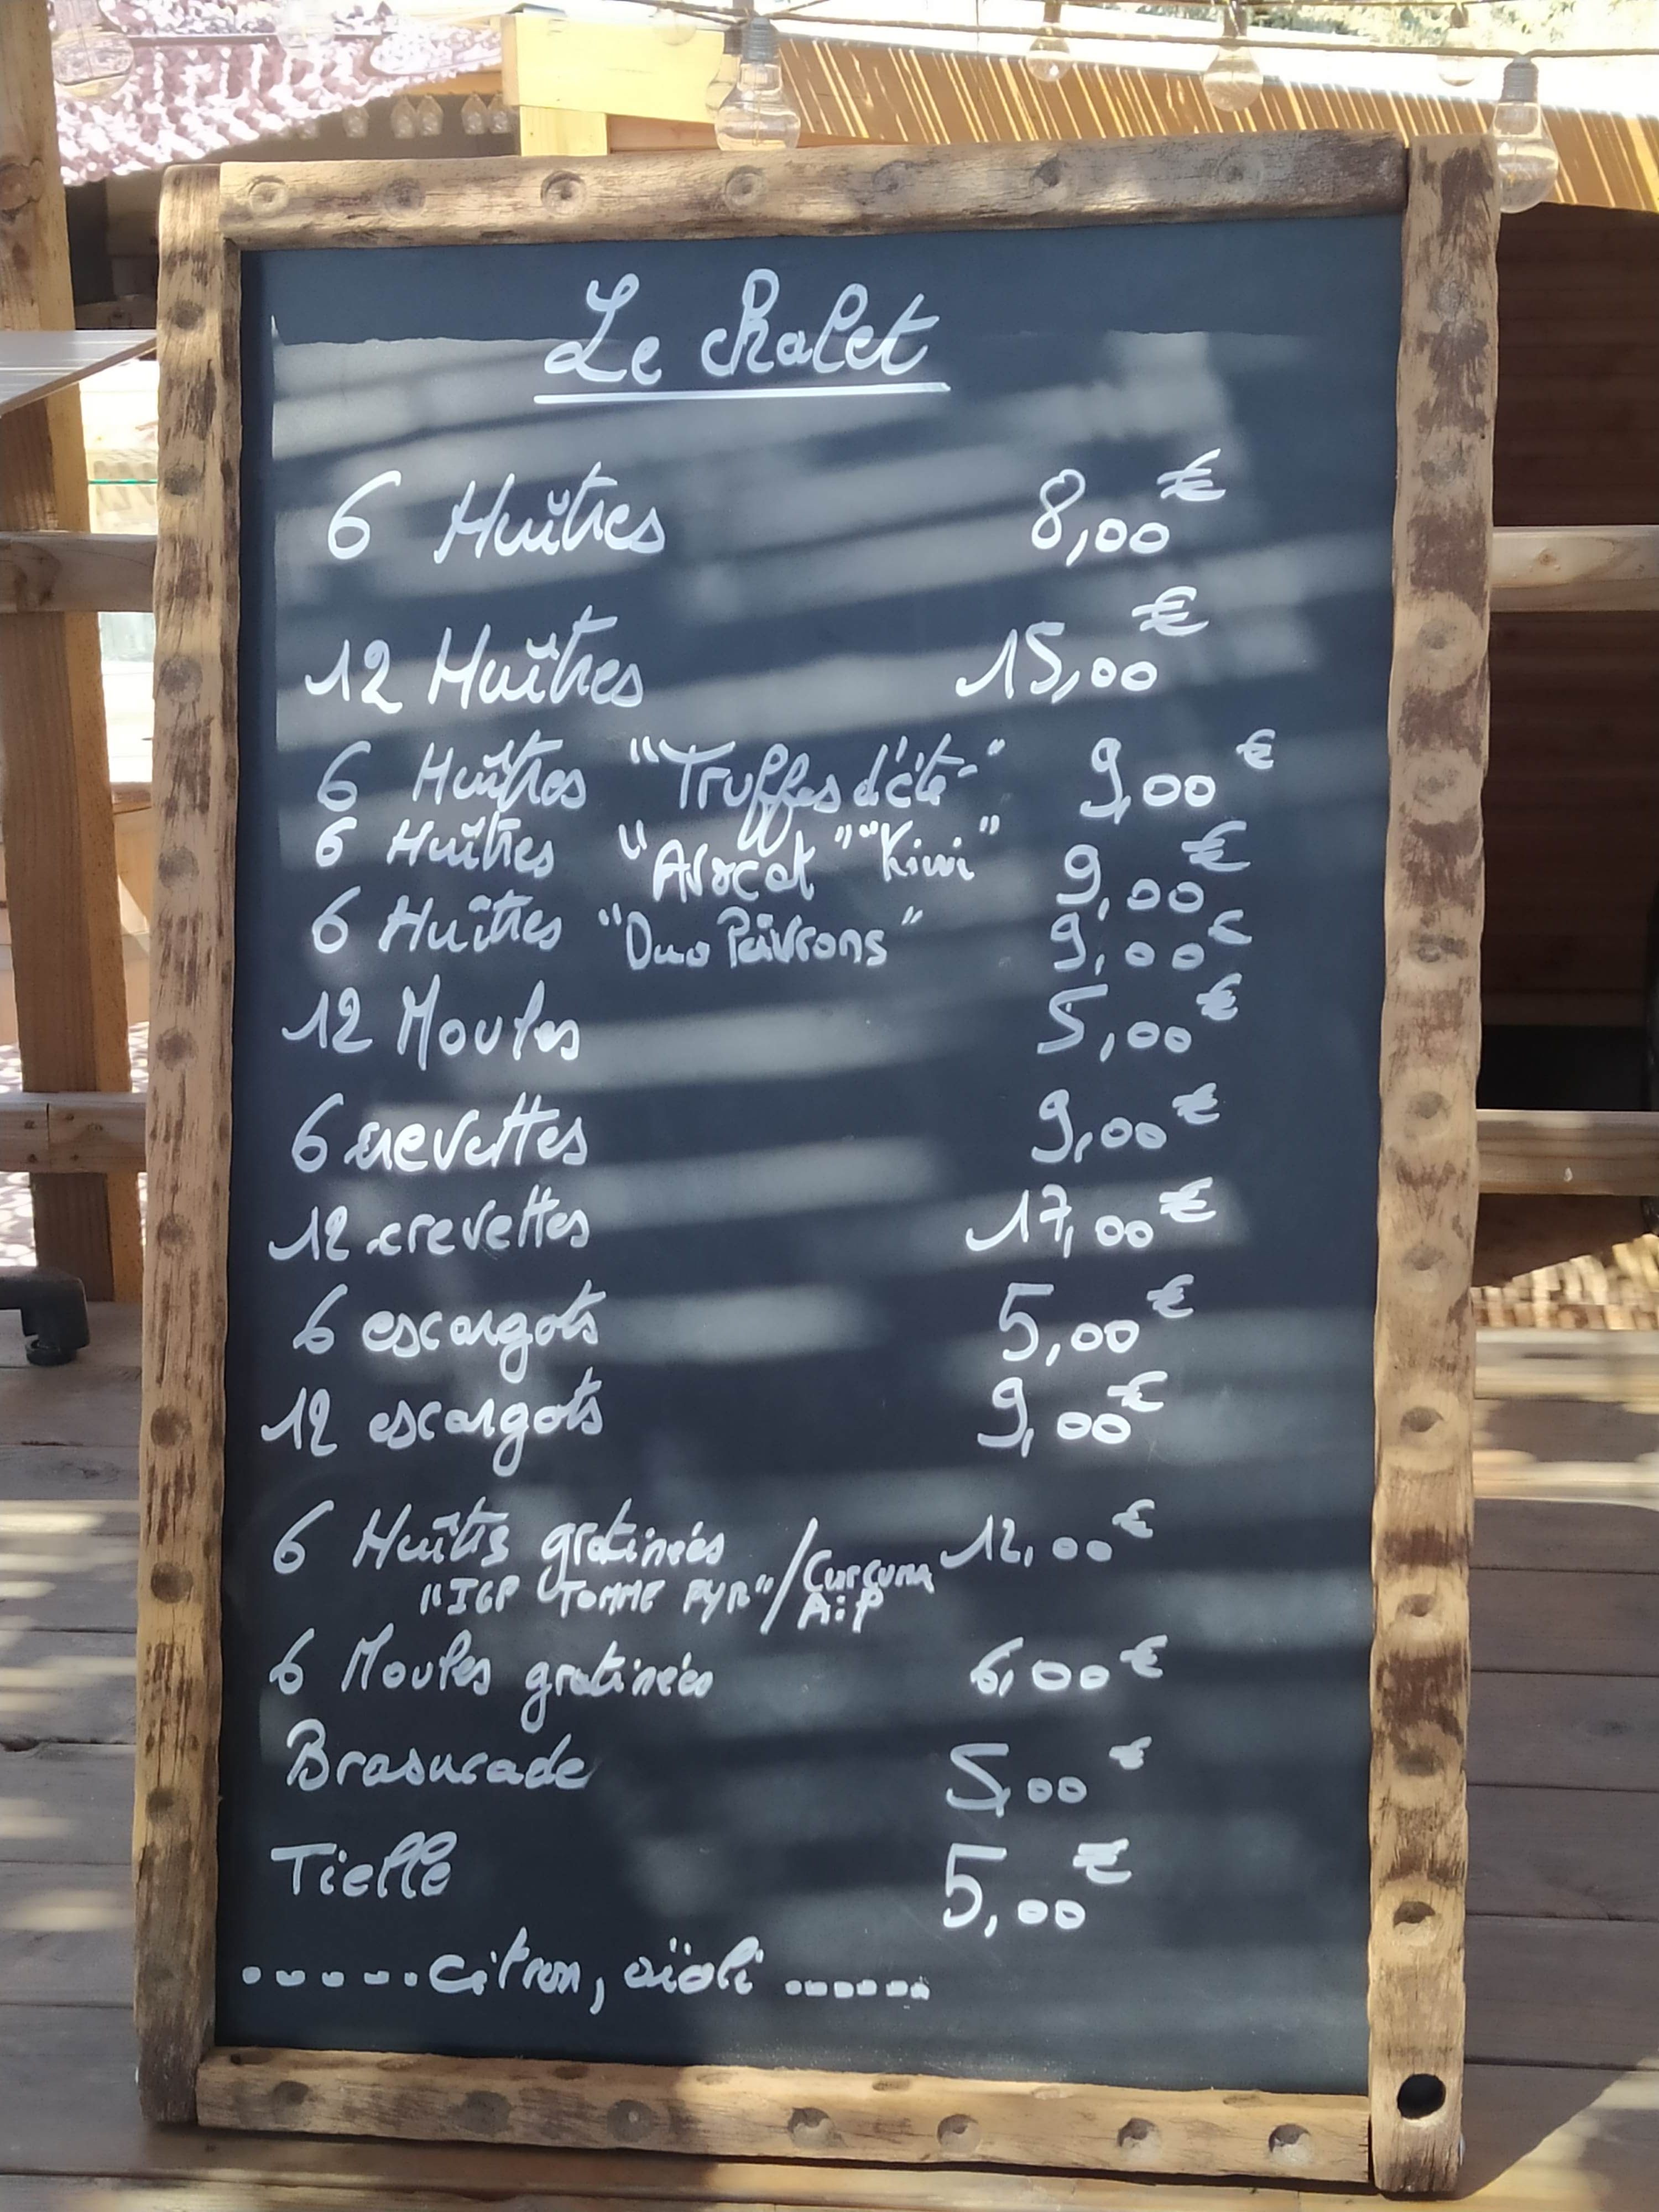 Le chalet
6 Huîtres 8,00€
12 Huîtres 15,00€
6 Huîtres "Truffes d'été" 9,00€
6 Huîtres "Avocat" "Kiwi" 9,00€
6 Huîtres "Duo Poivrons" 9,00€
12 Moules 5,00€
6 crevettes 9,00€
12 crevettes 17,00€
6 escargots 5,00€
12 escargots 9,00€
6 Huîtres gratinées 12,00€
"IGP TOMME PYR" / Curcuma Ail
6 Moules gratinées 6,00€
Brasucade 5,00€
Tielle 5,00€
.....citron, aïoli ......